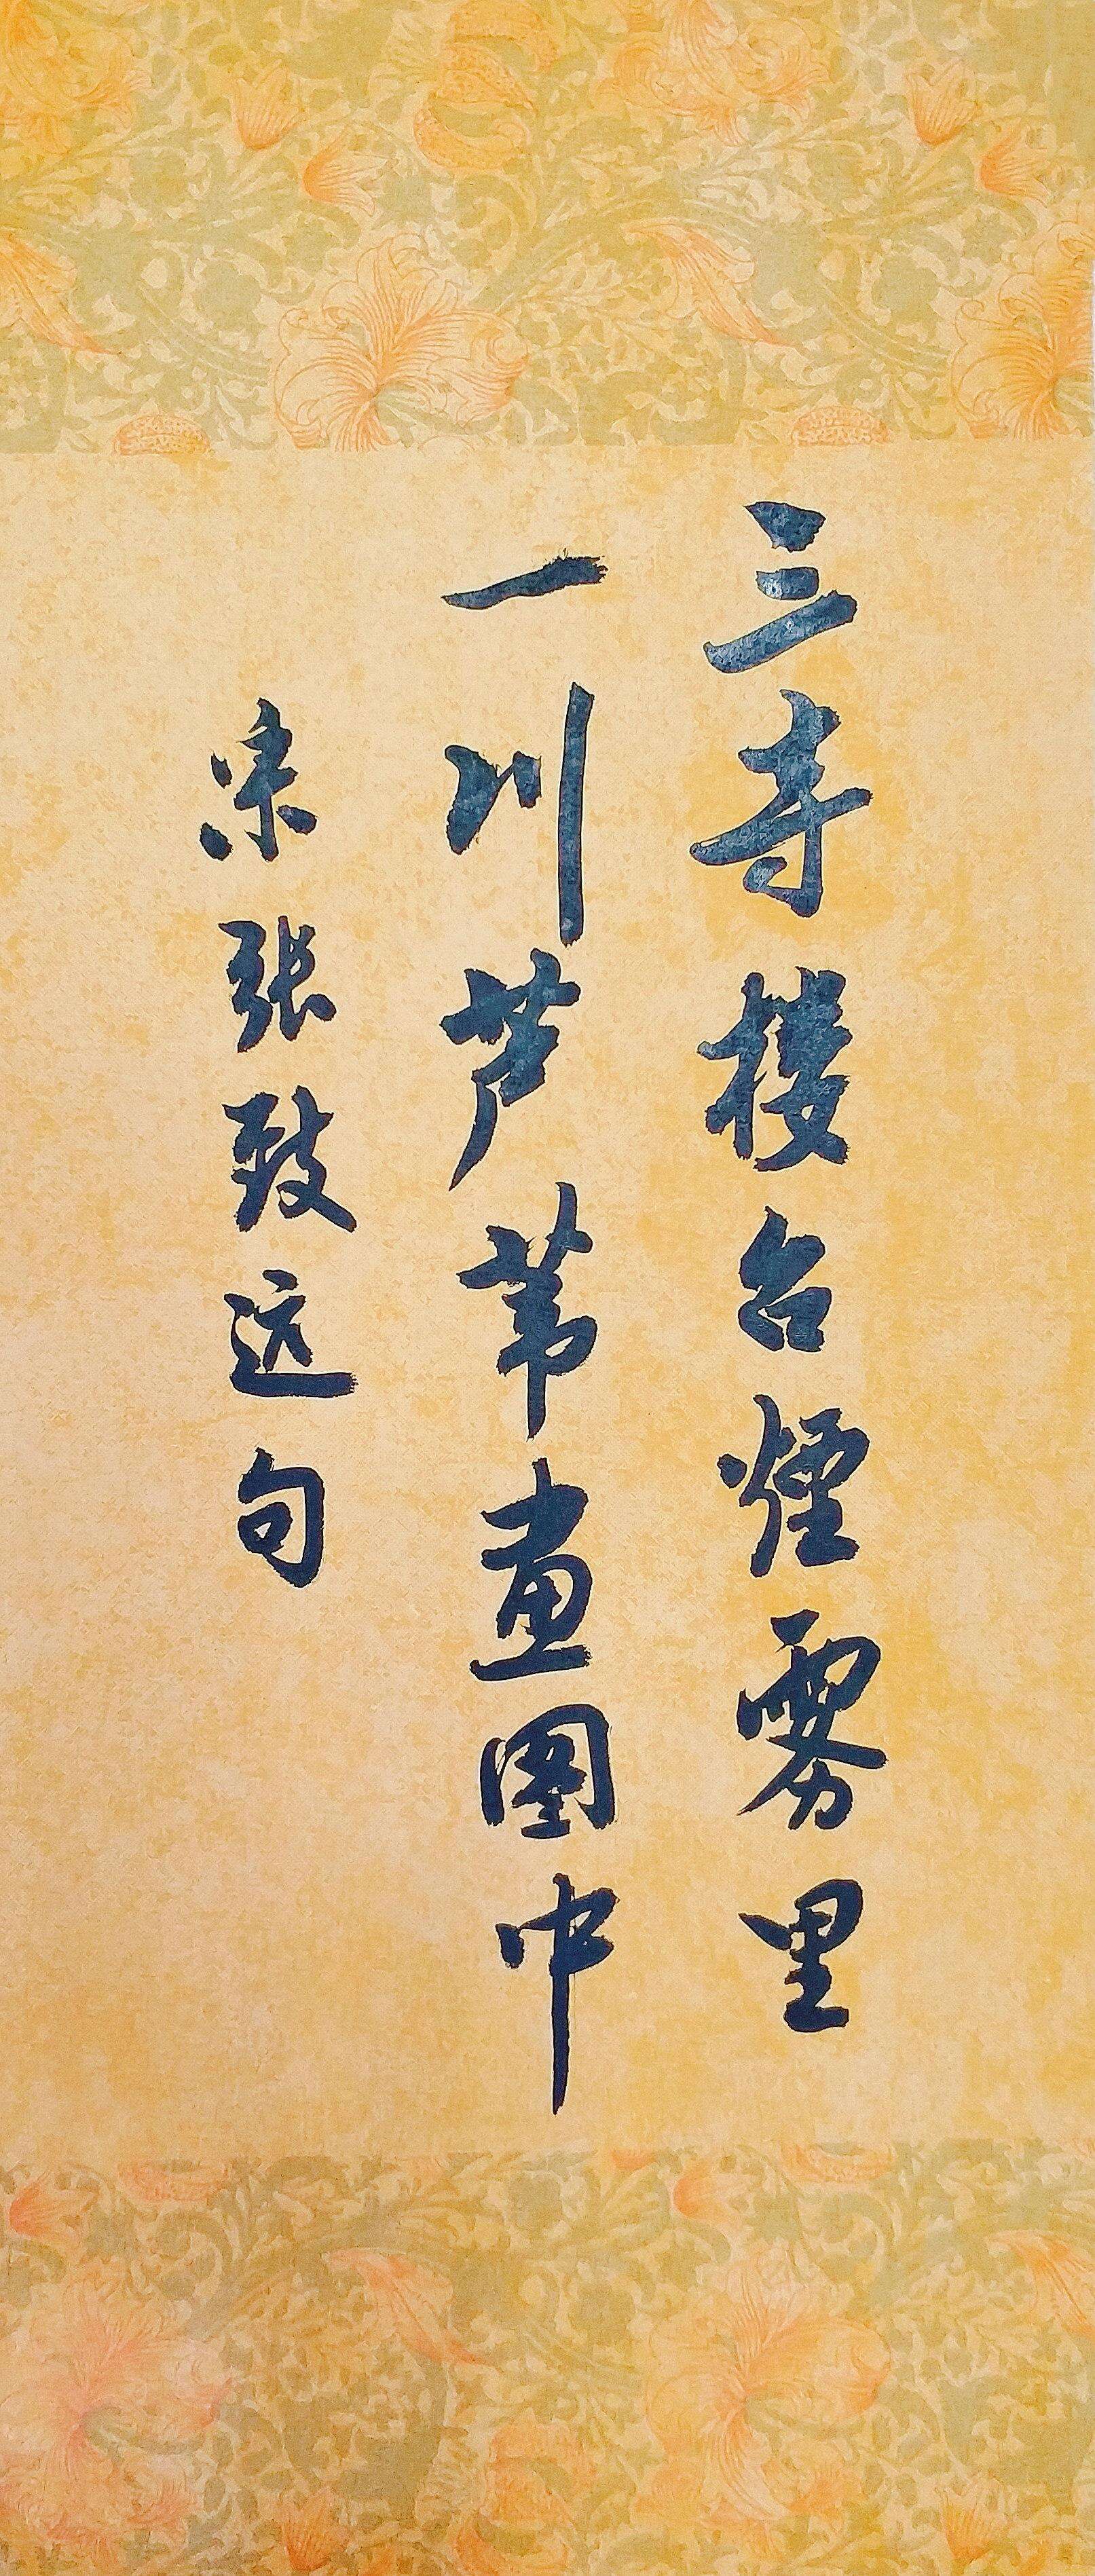 三寺楼台煙雾里
一川芦苇画图中
宋张致远句